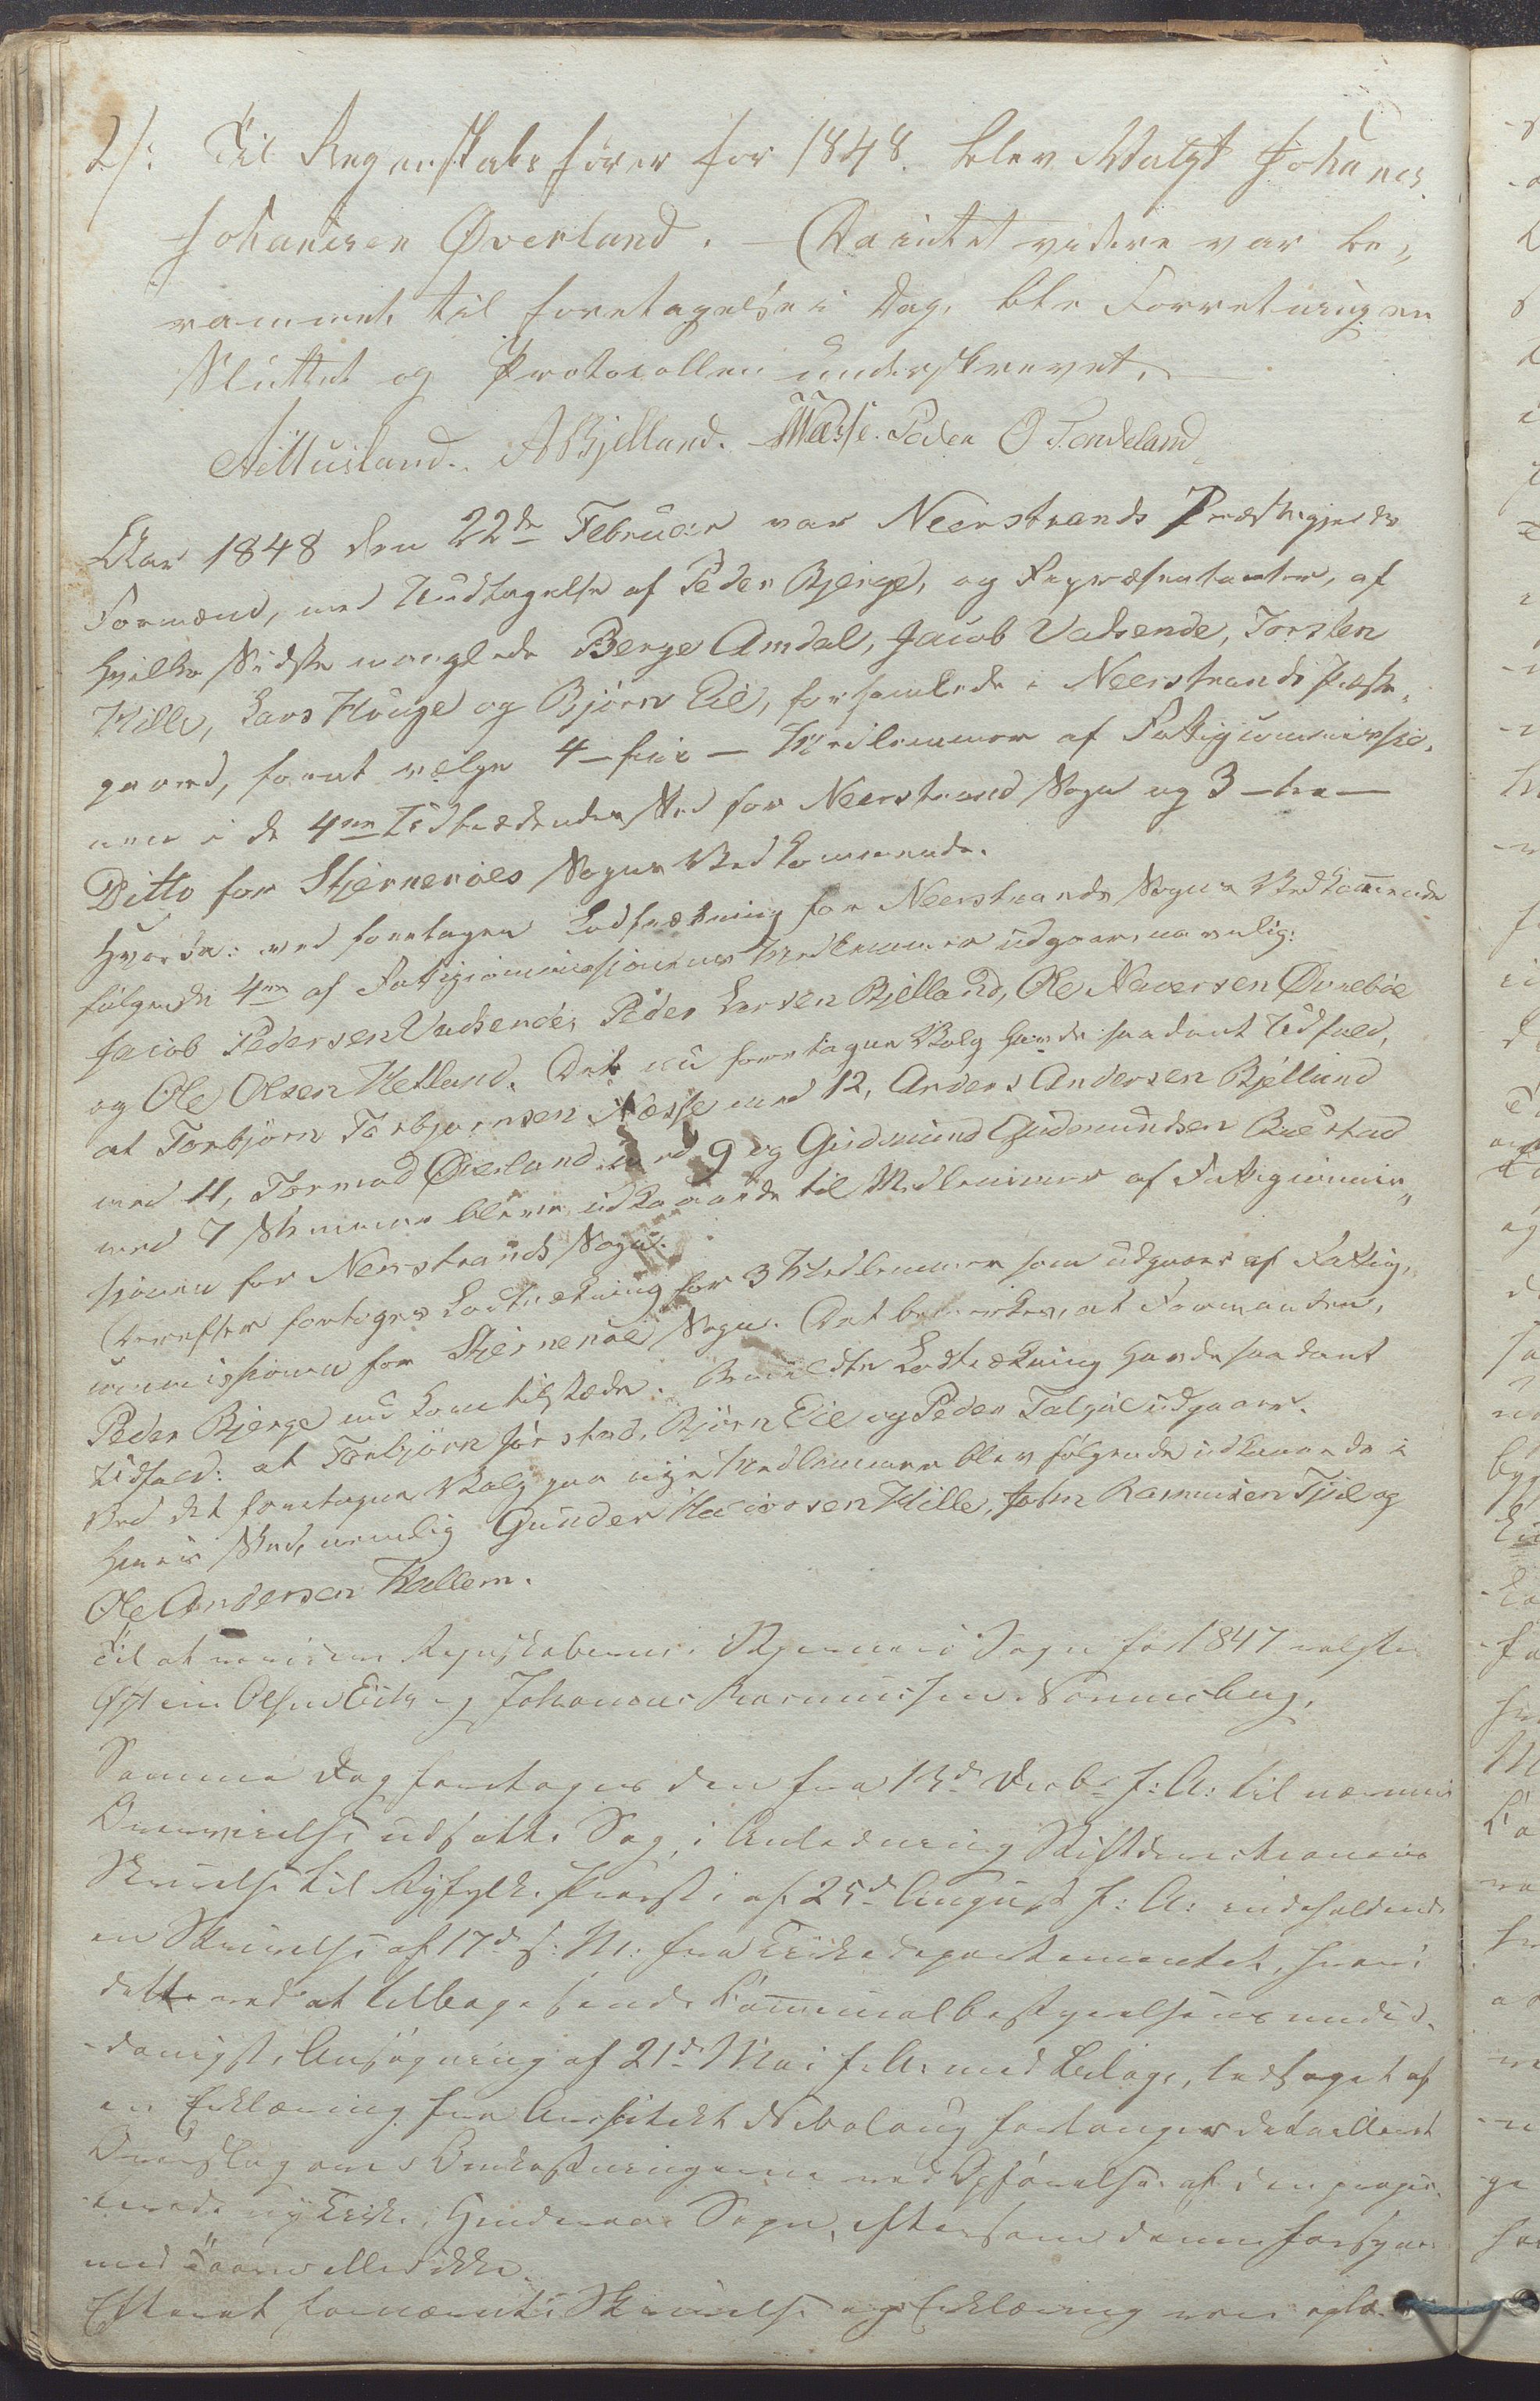 2/: Til Regenskabsfører for 1848. blev Walgt Johanes
Johanesen Øverland. – Da intet videre var be-
rammet til foretagelse i Dag, blev Forretningen
Sluttet og Protocollen underskrevet.
A Bjelland. Peder O Tendeland
Aar 1848 den 22de Februar var Neerstrands Præstegjelds
Formænd, med Undtagelse af Peder Bjerge, og Repræsentanter, af
hvilke Sidste manglede Berge Amdal, Jacob Vadsende, Torsten
Hille, Lars Houge og Bjørn Eie, forsamlede i Neerstrands Præste-
gaard, for at vælge 4 – fire – Medlemmer af Fattigcommissio-
nen i de 4re Udtrædendes Sted for Neerstrand Sogn og 3 – tre –
Ditto for Stjernerøes Sogns Vedkommende.
Hvorda: ved foretagen Lodtrækning for Neerstrands Sogns Vedkommende
følgende 4re af Fattigcommissionens Medlemmer udgaar, nemlig:
Jacob Pedersen Vadsende, Peder Larsen Bjelland, Ole Naversen Øvrebøe
og Ole Olsen Hetland. Det nu foretagne Valg havde saadant Udfald,
at Torbjørn Torbjørnsen Næsse med 12, Anders Andersen Bjelland
med 11, Tormod Øverland med 9 og Gudmund Gudmundsen Buestad
med 7 Stemmer bleve udkaarede til Medlemmer af Fattigcommis-
sionen for Neerstrands Sogn.
Derefter foretoges Lodtrækning for 3 Medlemmer som udgaaer af Fattig-
commissionen for Stjernerøe Sogn. Det bemærkes, at Formanden,
Peder Bjerge nu kom tilstæde. Lodtrækning havde saadant
Udfald: at Torbjørn Jørstad, Bjørn Eie og Peder Talgje udgaaer.
Ved det foretagne Valg paa nye Medlemmer blev følgende udkaarede i
Sted, nemlig Gunder Hille, John Rasmusen Tjul og
Ole Andersen Hallem.
Til at revidere Regnskaberne i Stjernerø Sogn for 1847 valgtes
Østein Olsen Eide og Johannes Rasmussen
Samme Dag foretoges den fra 13de Decbr f: A: til nærmere
Overveielse udsatte Sag, i Anledning Stiftdirectionens
Skrivelse til Ryfylke Provsti af 25de August f: A: indeholdende
en Skrivelse af 17de s: M: fra Kirkedepartementet, hvori
dette ved at tilbagesende Communalbestyrelsens under-
danigste Ansøgning af 21de Mai f. A. med Bilage, ledsaget af
en Erklæring fra Architekt Nebelong forlanger detailleret
Overslag over Omkostningerne ved Opførelse af den projec-
terede nye Kirke i Hinderaa Sogn, eftersom denne forsynes
med Taarn eller ikke.
Efterat fornævnte Skrivelse og Erklæring var oplæ-